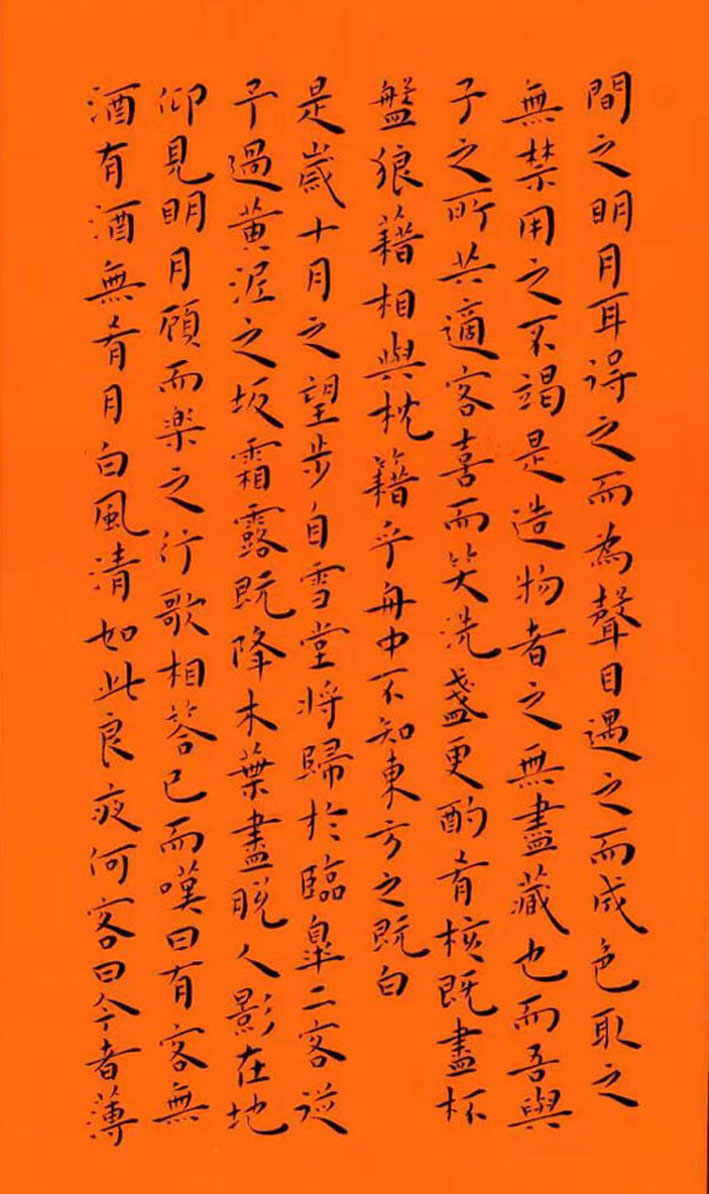 間之明月耳得之而為聲目遇之而成色取之
無禁用之不竭是造物者之無盡藏也而吾與
子之所共適客喜而笑洗盞更酌肴核既盡杯
盤狼籍相與枕籍乎舟中不知東方之既白
是歲十月之望步自雪堂將歸於臨皋二客從
予過黃泥之坂霜露既降木葉盡脫人影在地
仰見明月顧而楽之行歌相答已而嘆曰有客無
酒有酒無肴月白風清如此良夜何客曰今者薄